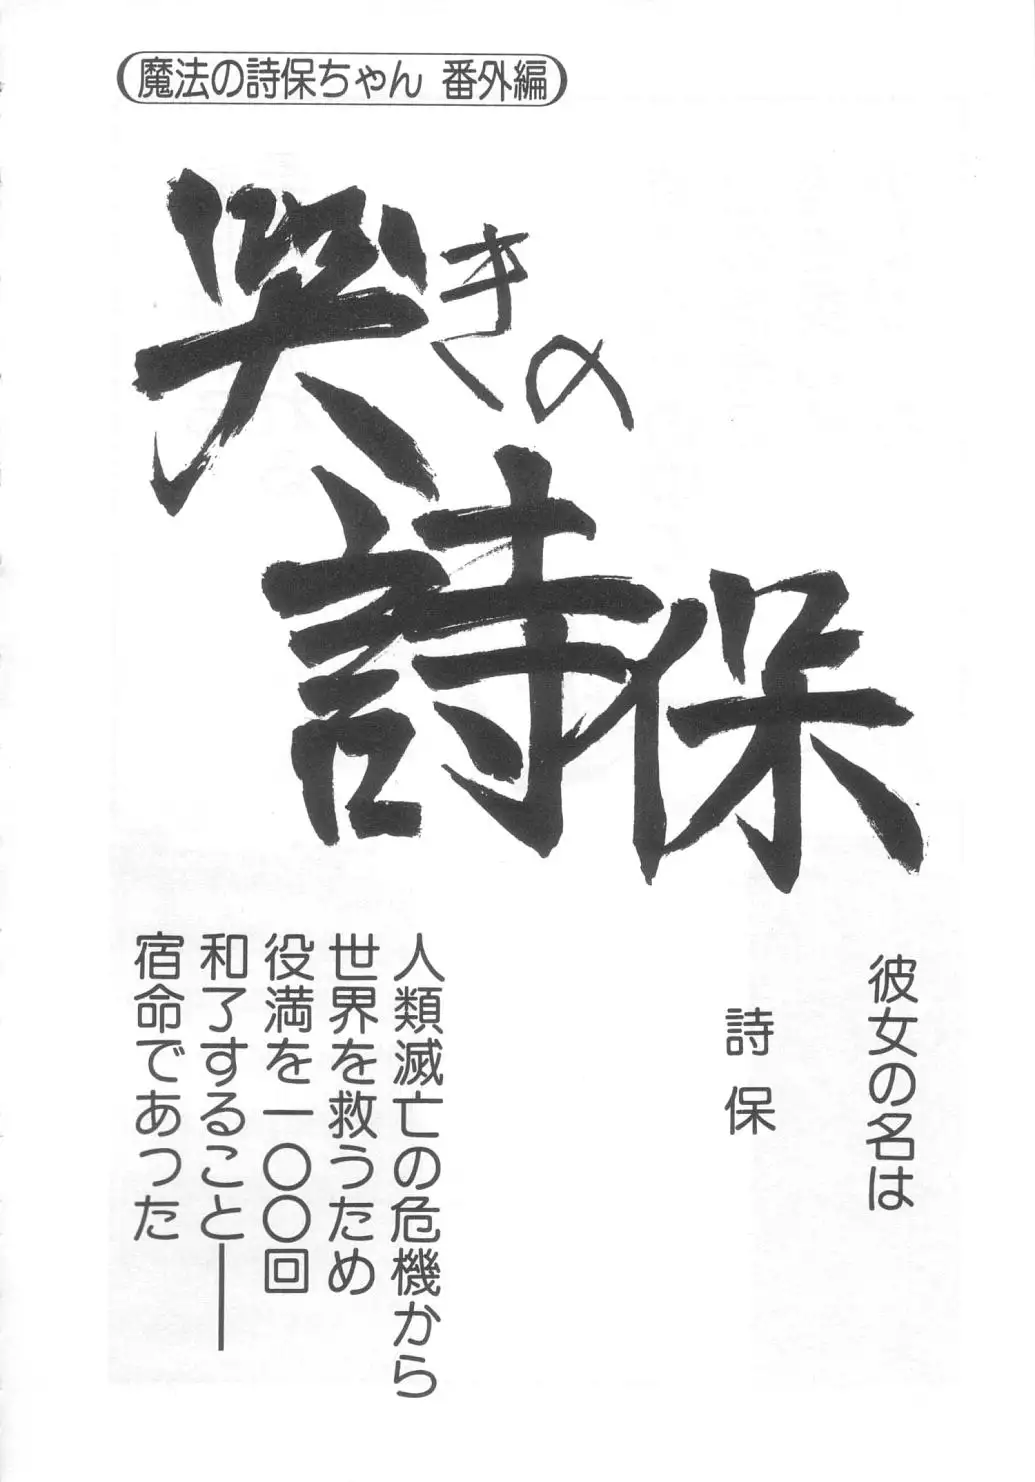 魔法の詩保ちゃん 番外編
哭きの
詩保
彼女の名は
詩保
人類滅亡の危機から
世界を救うため
役満を一〇〇回
和了すること――
宿命であった